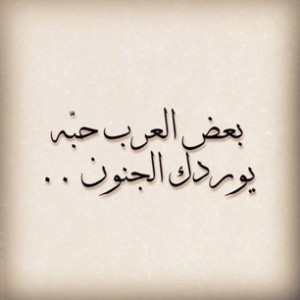 بعض العرب حبّه
يوردك الجنون . .